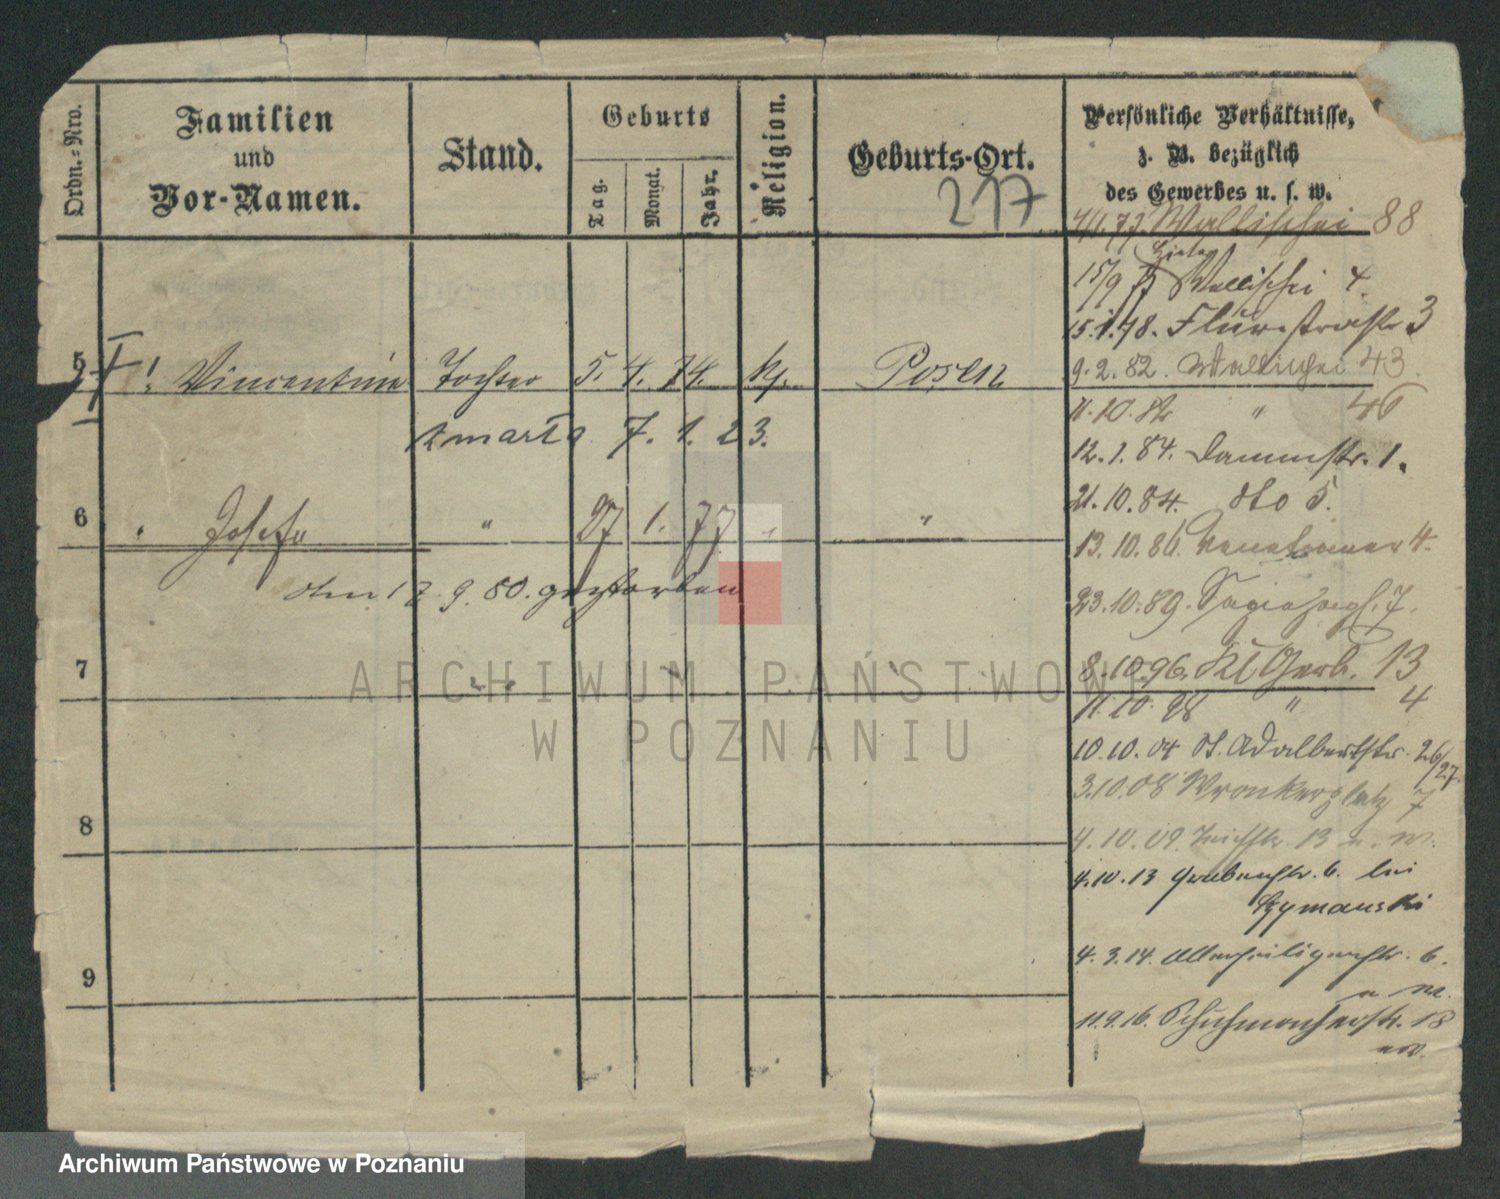 Ordn.-Nro.
Familien
und
Vor-Namen.
Stand.
Geburts
Tag.
Monat.
Jahr.
Religion.
Geburts-Ort.
217
Persönliche Verhältnisse,
z. B. bezüglich
des Gewerbes u. s. w.
Wallischei 88
15/9 Wallischei 4.
15.1.78. Flurstrasse 3
5 Vincentine Tochter 5. 4. 74. k. Posen
9.2.82. Wallischei 43.
11.10.82 " 46
zmarła 7. 1. 23.
12.1.84. Dammstr. 1.
21.10.84. dto 5.
6 " Josefa " 27 1. 77 " "
13.10.86. 4.
den 17.9.80. gestorben
23.10.89. 7.
7
8.10.96. Kl Gerb. 13
11.10.98 " 4
10.10.04 St. Adalbertstr. 26/27.
3.10.08 Wronkerplatz 7
8
4.10.09. Teichstr. 13 u. W.
4.10.13 Grabenstr. 6. bei
Szymanski
9
4.3.14. Allerheiligenstr. 6.
u W.
11.9.16. Schuhmacherstr. 18
ARCHIWUM PAŃSTWOWE
W POZNANIU
Archiwum Państwowe w Poznaniu